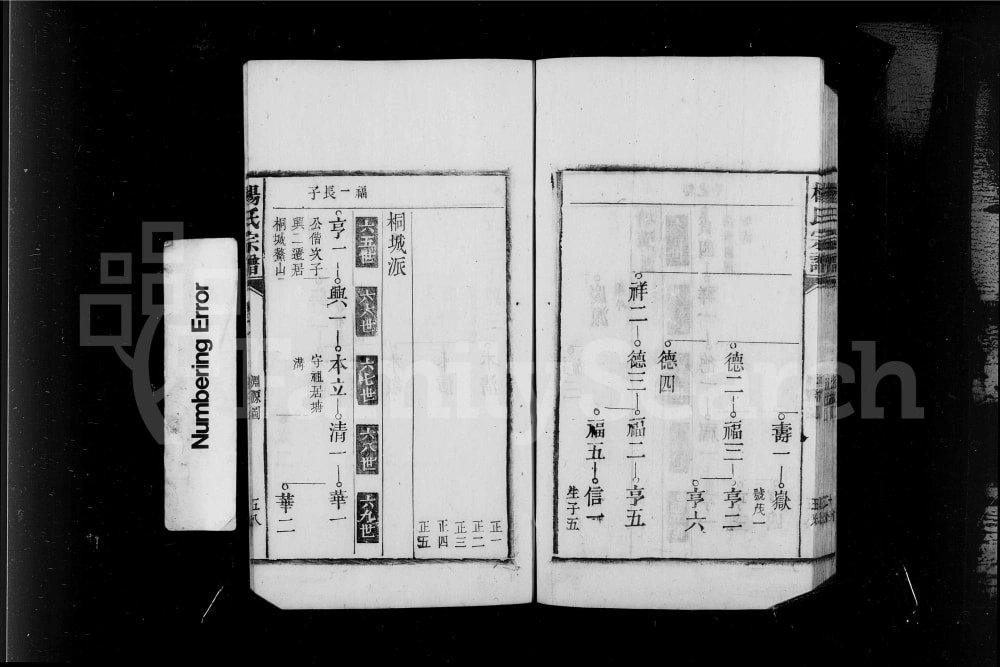 壽一 嶽
號茂一
德二 福三 亨二
亨六
德四
祥二 德三 福二 亨五
福五 信一
生子五
正一
正二
正三
正四
正五
桐城派
六五世 六六世 六七世 六八世 六九世
福一長子
亨一 興一 本立 清一 華一
公偕次子
興二遷居
桐城鰲山
守祖居塘
溝
華二
楊氏宗譜
淵源圖
五八
Numbering Error
FamilySearch